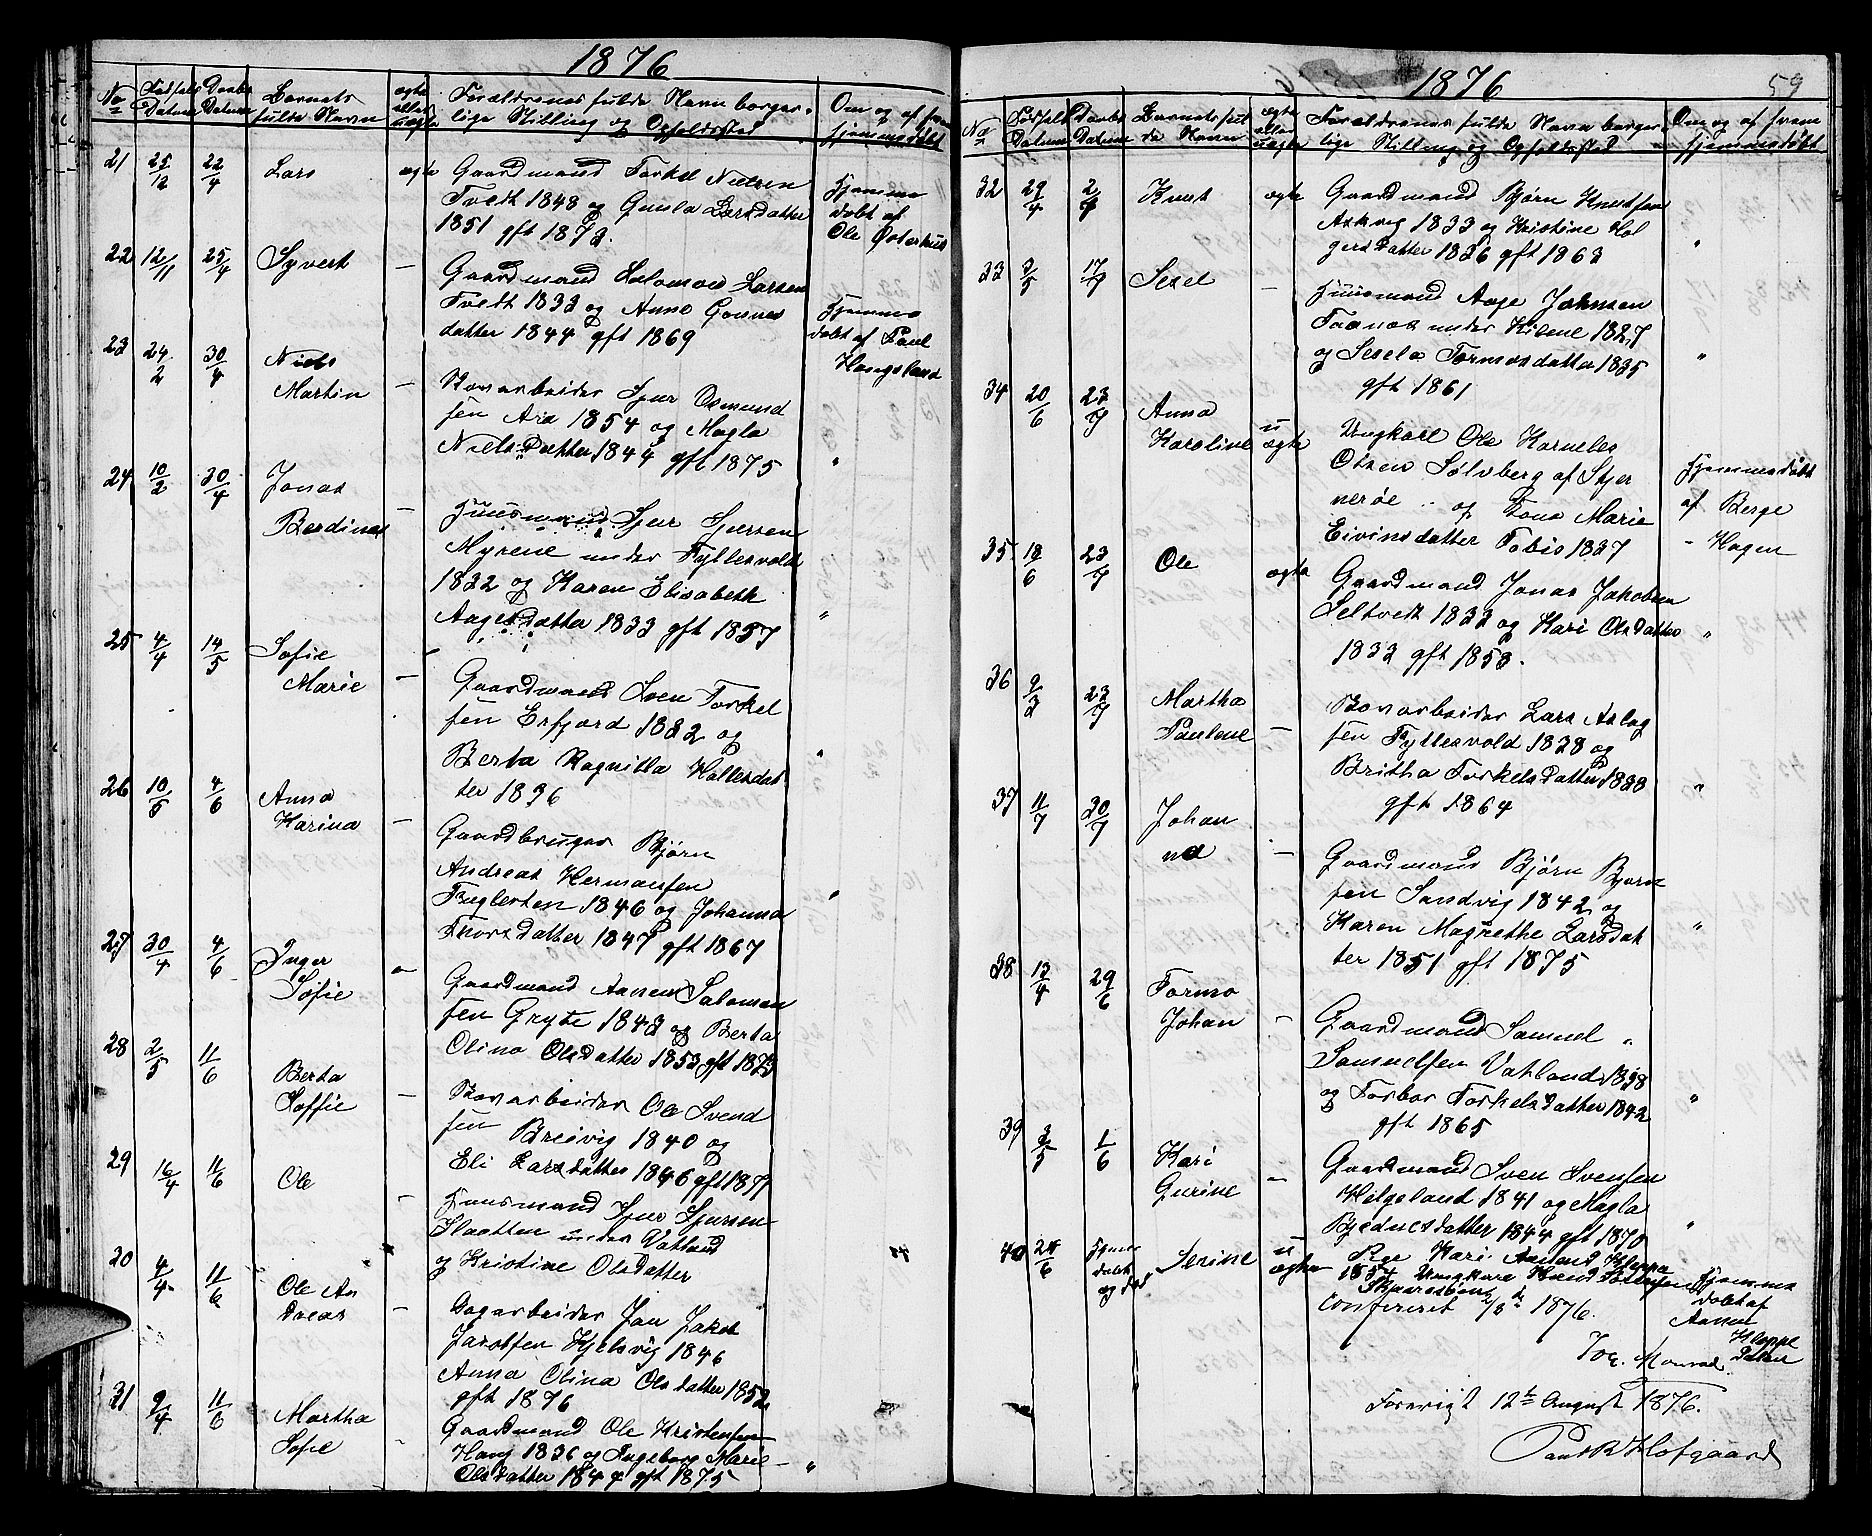 1876
No Fødsels Datum Daabs Datum Barnets fulde Navn ægte eller uægte Forældrenes fulde Navn borger lige Stilling og Opholdssted Om og af hvem hjemmedøbt
21 25/12 22/4 Lars ægte Gaardmand Torkel Nielsen
Tvedt 1848 og Gunla Larsdatter
1851 gft 1873.
Hjemme
døbt af
Ole Østerhus
22 12/11 25/4 Syvert — Gaardmand Salomon Larsen
Tvedt 1833 og Anne Gounes
datter 1844 gft 1869
Hjemme
døbt af Paul
Haugsland
23 24/2 30/4 Niels
Martin — Vovarbeider Sjur Osmund
sen Ara 1854 og Magla
Nielsdatter 1844 gft 1875 "
24 10/2 30/4 Jonas
Berdines — Huusmand Sjur Sjursen
Myrene under Fyllesvold
1832 og Karen Elisabeth
Aagesdatter 1833 gft 1857 "
25 4/4 14/5 Sofie
Marie — Gaardmand Sven Torkel
sen Erfjord 1832 og
Berta Ragnilla Hallesdat
ter 1836 "
26 10/5 4/6 Anna
Karina — Gaardbruger Bjørn
Andreas Hermansen
Fuglesten 1846 og Johanna
Thorsdatter 1847 gft 1867 "
27 30/4 4/6 Inger
Sofie — Gaardmand Aanen Salomon
sen Gryte 1843 og Berta
Olina Olsdatter 1853 gft 1875
28 2/5 11/6 Berta
Soffie — Vovarbeider Ole Svend
sen Breivig 1840 og
Eli Larsdatter 1846 gft 1877
29 16/4 11/6 Ole — Huusmand Sjur Sjursen
Slaatten under Vatland
og Kristine Olsdatter
30 4/4 11/6 Ole An
dreas — Dagarbeider Jan Jakob
Jacobsen Hjelsvig 1846
Anna Olina Olsdatter 1852
gft 1876
31 9/4 11/6 Martha
Sofie — Gaardmand Ole Kristensen
Haug 1836 og Ingeborg Marie
Olsdatter 1844 gft 1875 "
1876 59
No Fødsels Datum Daabs Datum Barnets ful de Navn ægte eller uægte Forældrenes fulde Navn borger lige Stilling og Opholdssted Om og af hvem hjemmedøbt
32 29/4 2/7 Knut ægte Gaardmand Bjørn Knutsen
Askvig 1833 og Kristine Hol
gersdatter 1836 gft 1863 "
33 3/5 17/7 Sesel — Huusmand Aage Johnsen
Taanes under Kilene 1827
og Sesela Tormosdatter 1835
gft 1861 "
34 20/6 23/7 Anna
Karoline u
ægte Ungkarl Ole Kornelius
Olsen Sølvberg af Stjer
nerøe og Tona Marie
Eivinsdatter Tobis 1837
Hjemmedøbt
af Berge
- Hagen
35 18/6 23/7 Ole ægte Gaardmand Jonas Jakobsen
Seltveit 1833 og Kari Olsdatter
1832 gft 1853. "
36 9/3 23/7 Martha
Pauline — Vovarbeider Lars Aslag
sen Fyllesvold 1828 og
Britha Torkelsdatter 1838
gft 1864 "
37 11/7 30/7 Johan
na — Gaardmand Bjørn Bjørn
sen Sandvig 1842 og
Karen Magrethe Larsdat
ter 1851 gft 1875 "
38 13/4 29/6 Tormo
Johan — Gaardmand Samuel "
Samuelsen Vatland 1838
og Torbor Torkelsdatter 1842
gft 1865 "
39 3/5 1/6 Kari
Gurine — Gaardmand Sven Svensen
Helgeland 1841 og Magla
Bjednesdatter 1844 gft 1870 "
40 24/6 Hjemme
døbt
og død Serine u
ægte Pige Kari Aanund Kleppe
1854 Ungkarl Knud Pedersen
Hjemme
døbt af
Aanen
Kleppe
Conferert 2/8 1876.
Joe. Monrad
Foreviist 12te August 1876.
Paul R Hofgaard